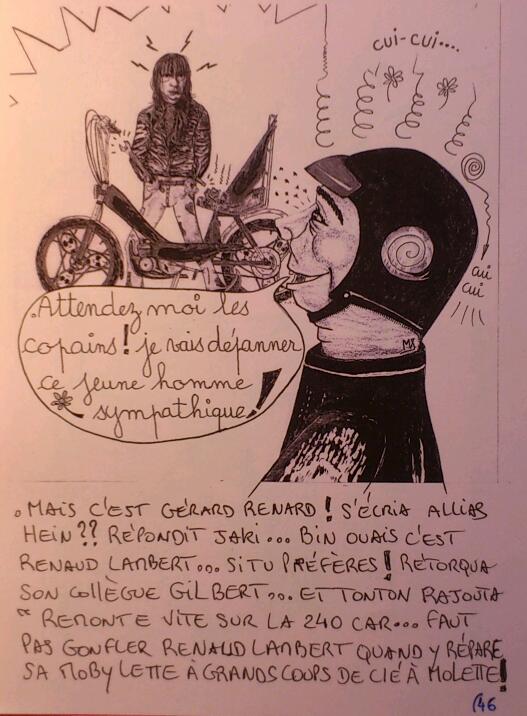 cui-cui....
cui
cui
.Attendez moi les
copains! je vais dépanner
ce jeune homme
sympathique!
MS
. MAIS C'EST GÉRARD RENARD! S'ÉCRIA ALLIAS
HEIN?? RÉPONDIT JARI... BIN OUAIS C'EST
RENAUD LAMBERT... SI TU PRÉFÈRES! RÉTORQUA
SON COLLÈGUE GILBERT... ET TONTON RAJOUTA
" REMONTE VITE SUR LA 240 CAR... FAUT
PAS GONFLER RENAUD LAMBERT QUAND Y RÉPARE
SA MOBYLETTE À GRANDS COUPS DE CLÉ À MOLETTE!
46